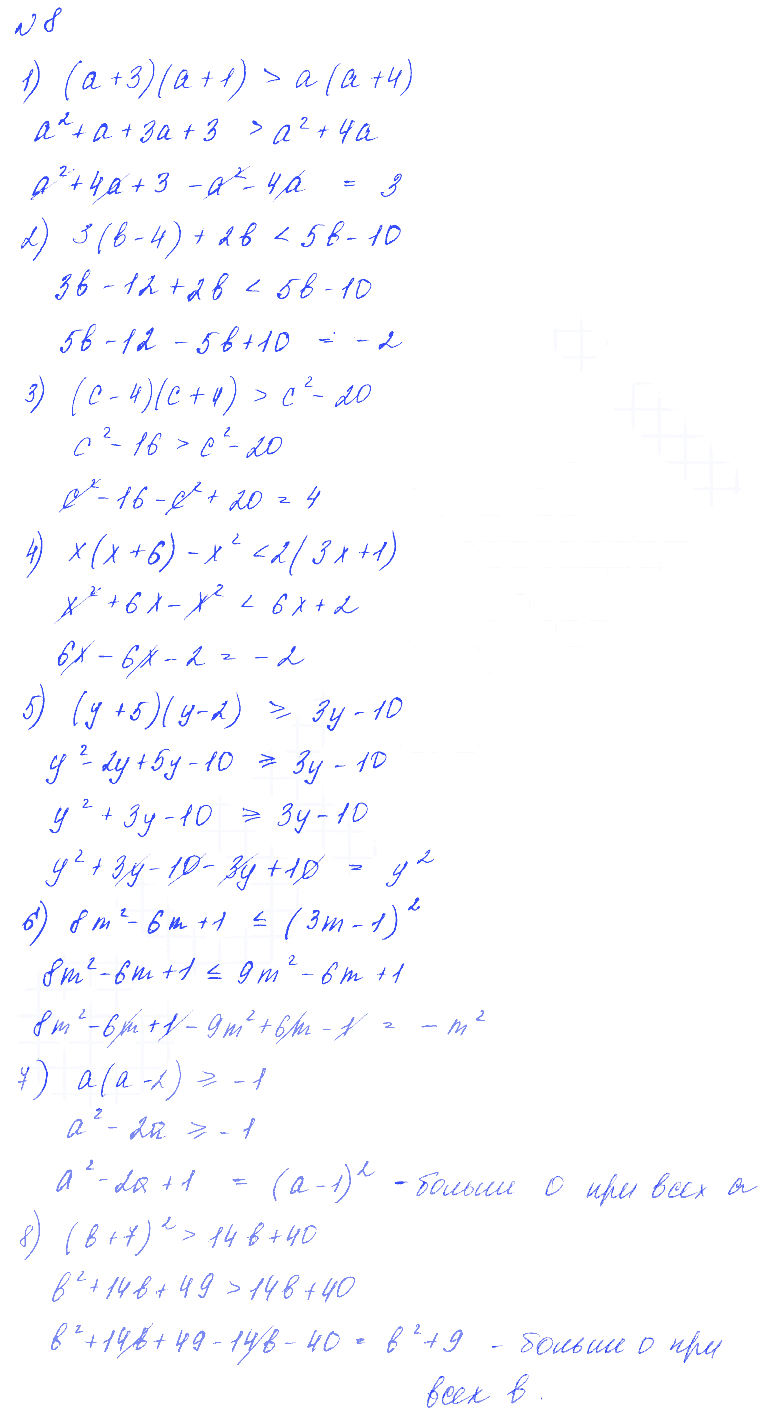 № 8
1) (a+3)(a+1) > a(a+4)
a²+a+3a+3 > a²+4a
a²+4a+3 -a²-4a = 3
2) 3(в-4)+2в < 5в-10
3в-12+2в < 5в-10
5в-12-5в+10 = -2
3) (c-4)(c+4) > c²-20
c²-16 > c²-20
c²-16-c²+20 = 4
4) x(x+6)-x² < 2(3x+1)
x²+6x-x² < 6x+2
6x-6x-2 = -2
5) (y+5)(y-2) ⩾ 3y-10
y²-2y+5y-10 ⩾ 3y-10
y²+3y-10 ⩾ 3y-10
y²+3y-10-3y+10 = y²
6) 8m²-6m+1 ≤ (3m-1)²
8m²-6m+1 ≤ 9m²-6m+1
8m²-6m+1-9m²+6m-1 = -m²
7) a(a-2) ⩾ -1
a²-2a ⩾ -1
a²-2a+1 = (a-1)² - больше 0 при всех a
8) (в+7)² > 14в+40
в²+14в+49 > 14в+40
в²+14в+49-14в-40 = в²+9 - больше 0 при
всех в.